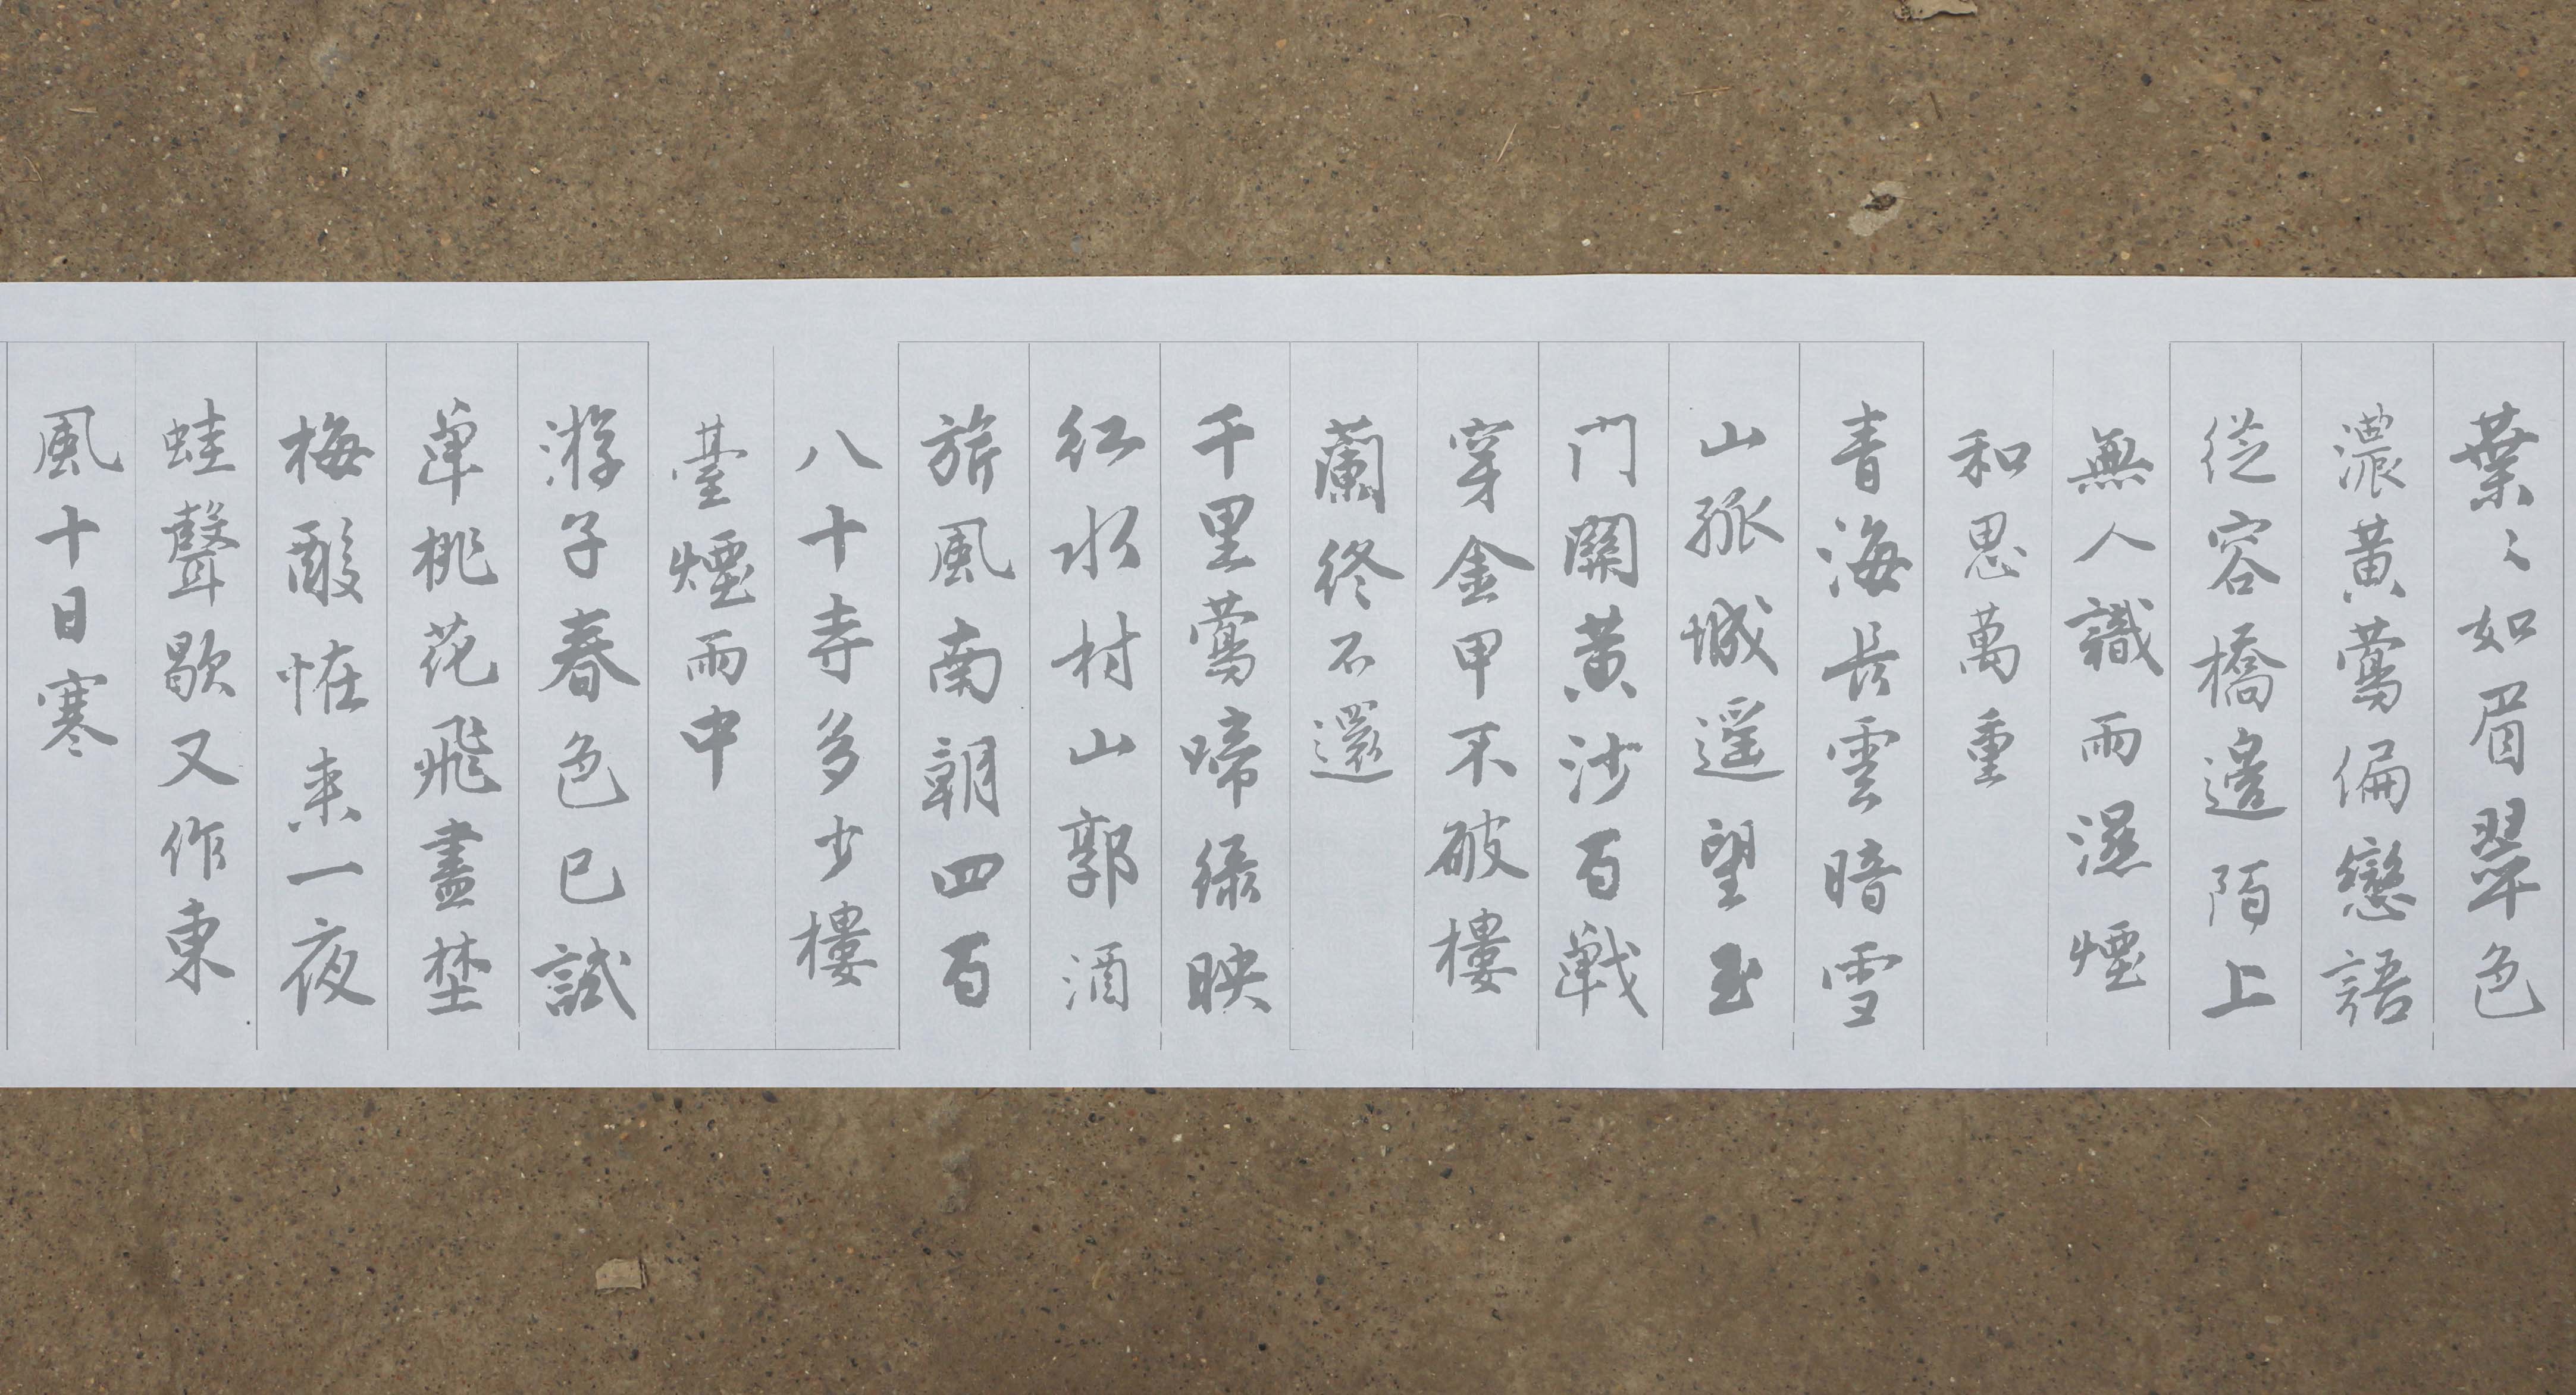 葉〻如眉翠色
濃黄鶯偏戀語
從容橋邊陌上
無人識雨濕煙
和思萬重
青海長雲暗雪
山孤城遥望玉
门關黄沙百戰
穿金甲不破樓
蘭終不還
千里鶯啼緑映
红水村山郭酒
旂風南朝四百
八十寺多少樓
臺煙雨中
游子春色已試
單桃花飛盡埜
梅酸怪来一夜
蛙聲歇又作東
風十日寒